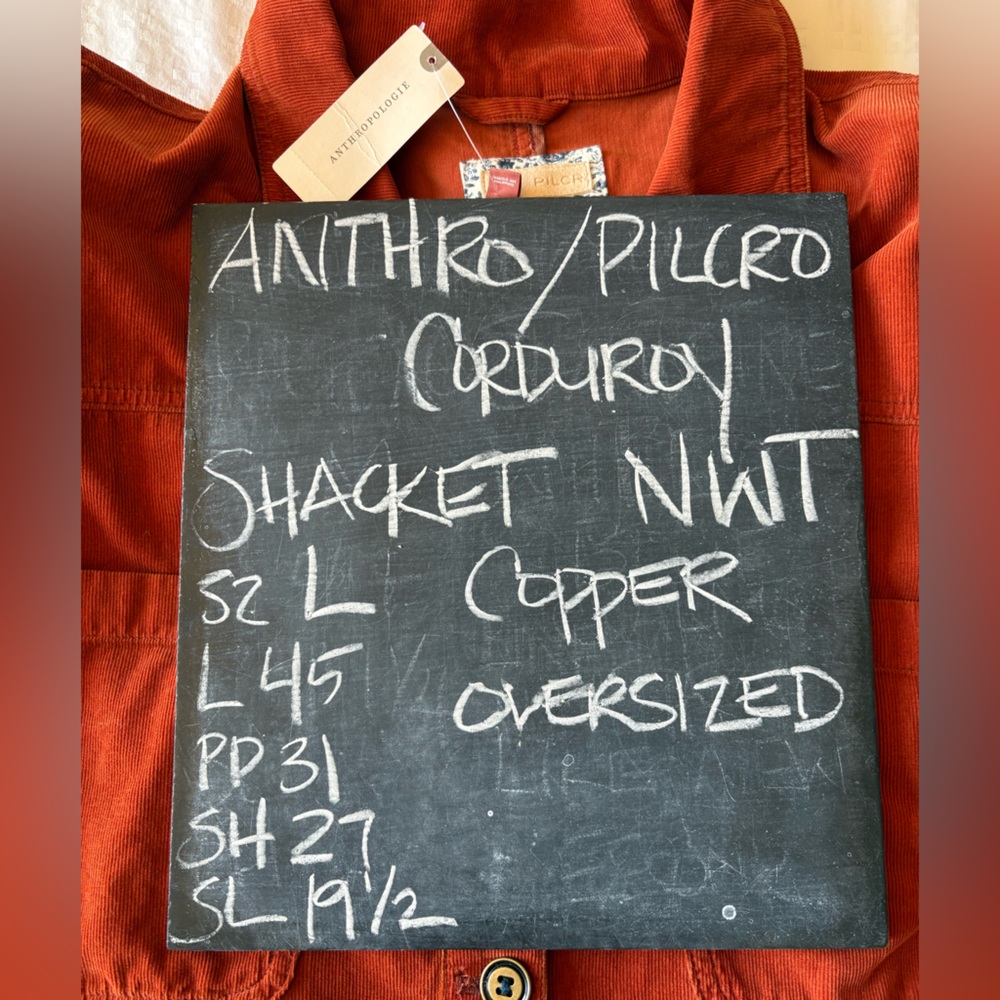 ANTHROPOLOGIE
PILCR
ANTHRO/PILCRO
CORDUROY
SHACKET NWT
SZ L COPPER
L 45 OVERSIZED
PP 31
SH 27
SL 19 1/2